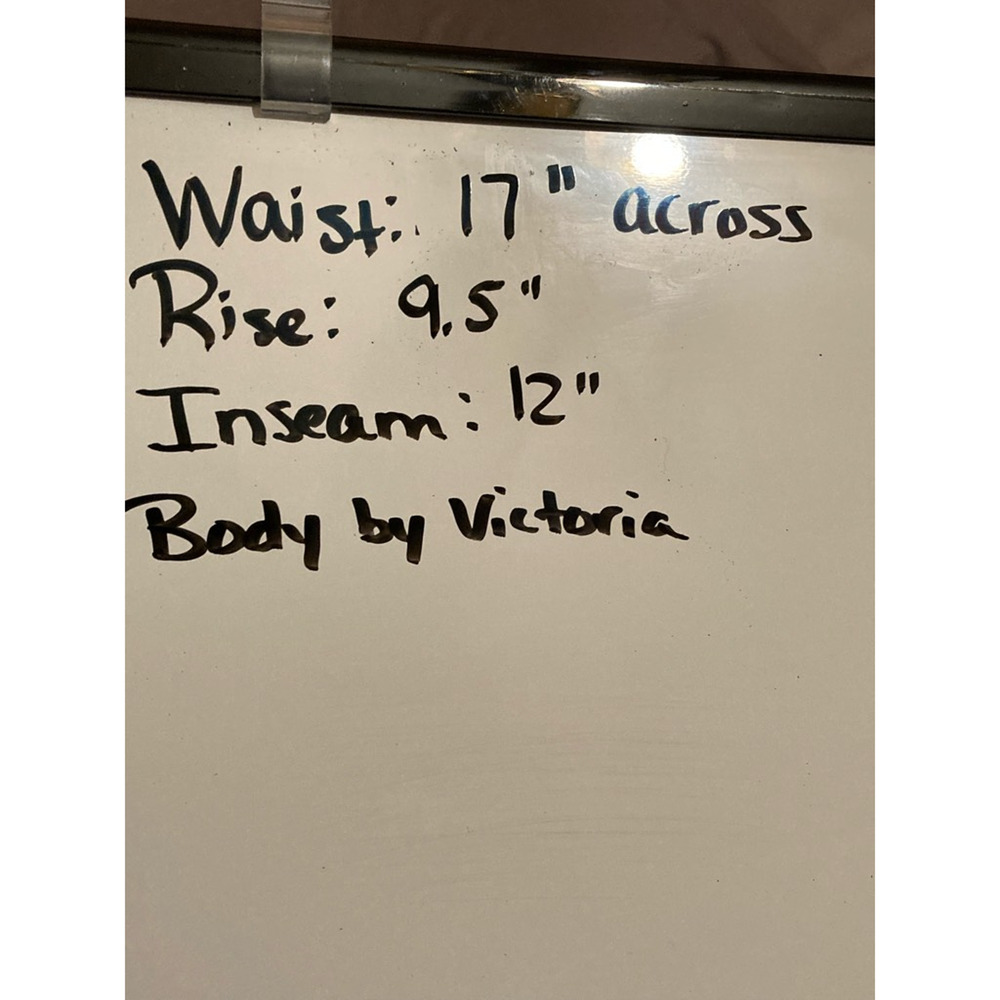 Waist: 17" across
Rise: 9.5"
Inseam: 12"
Body by Victoria